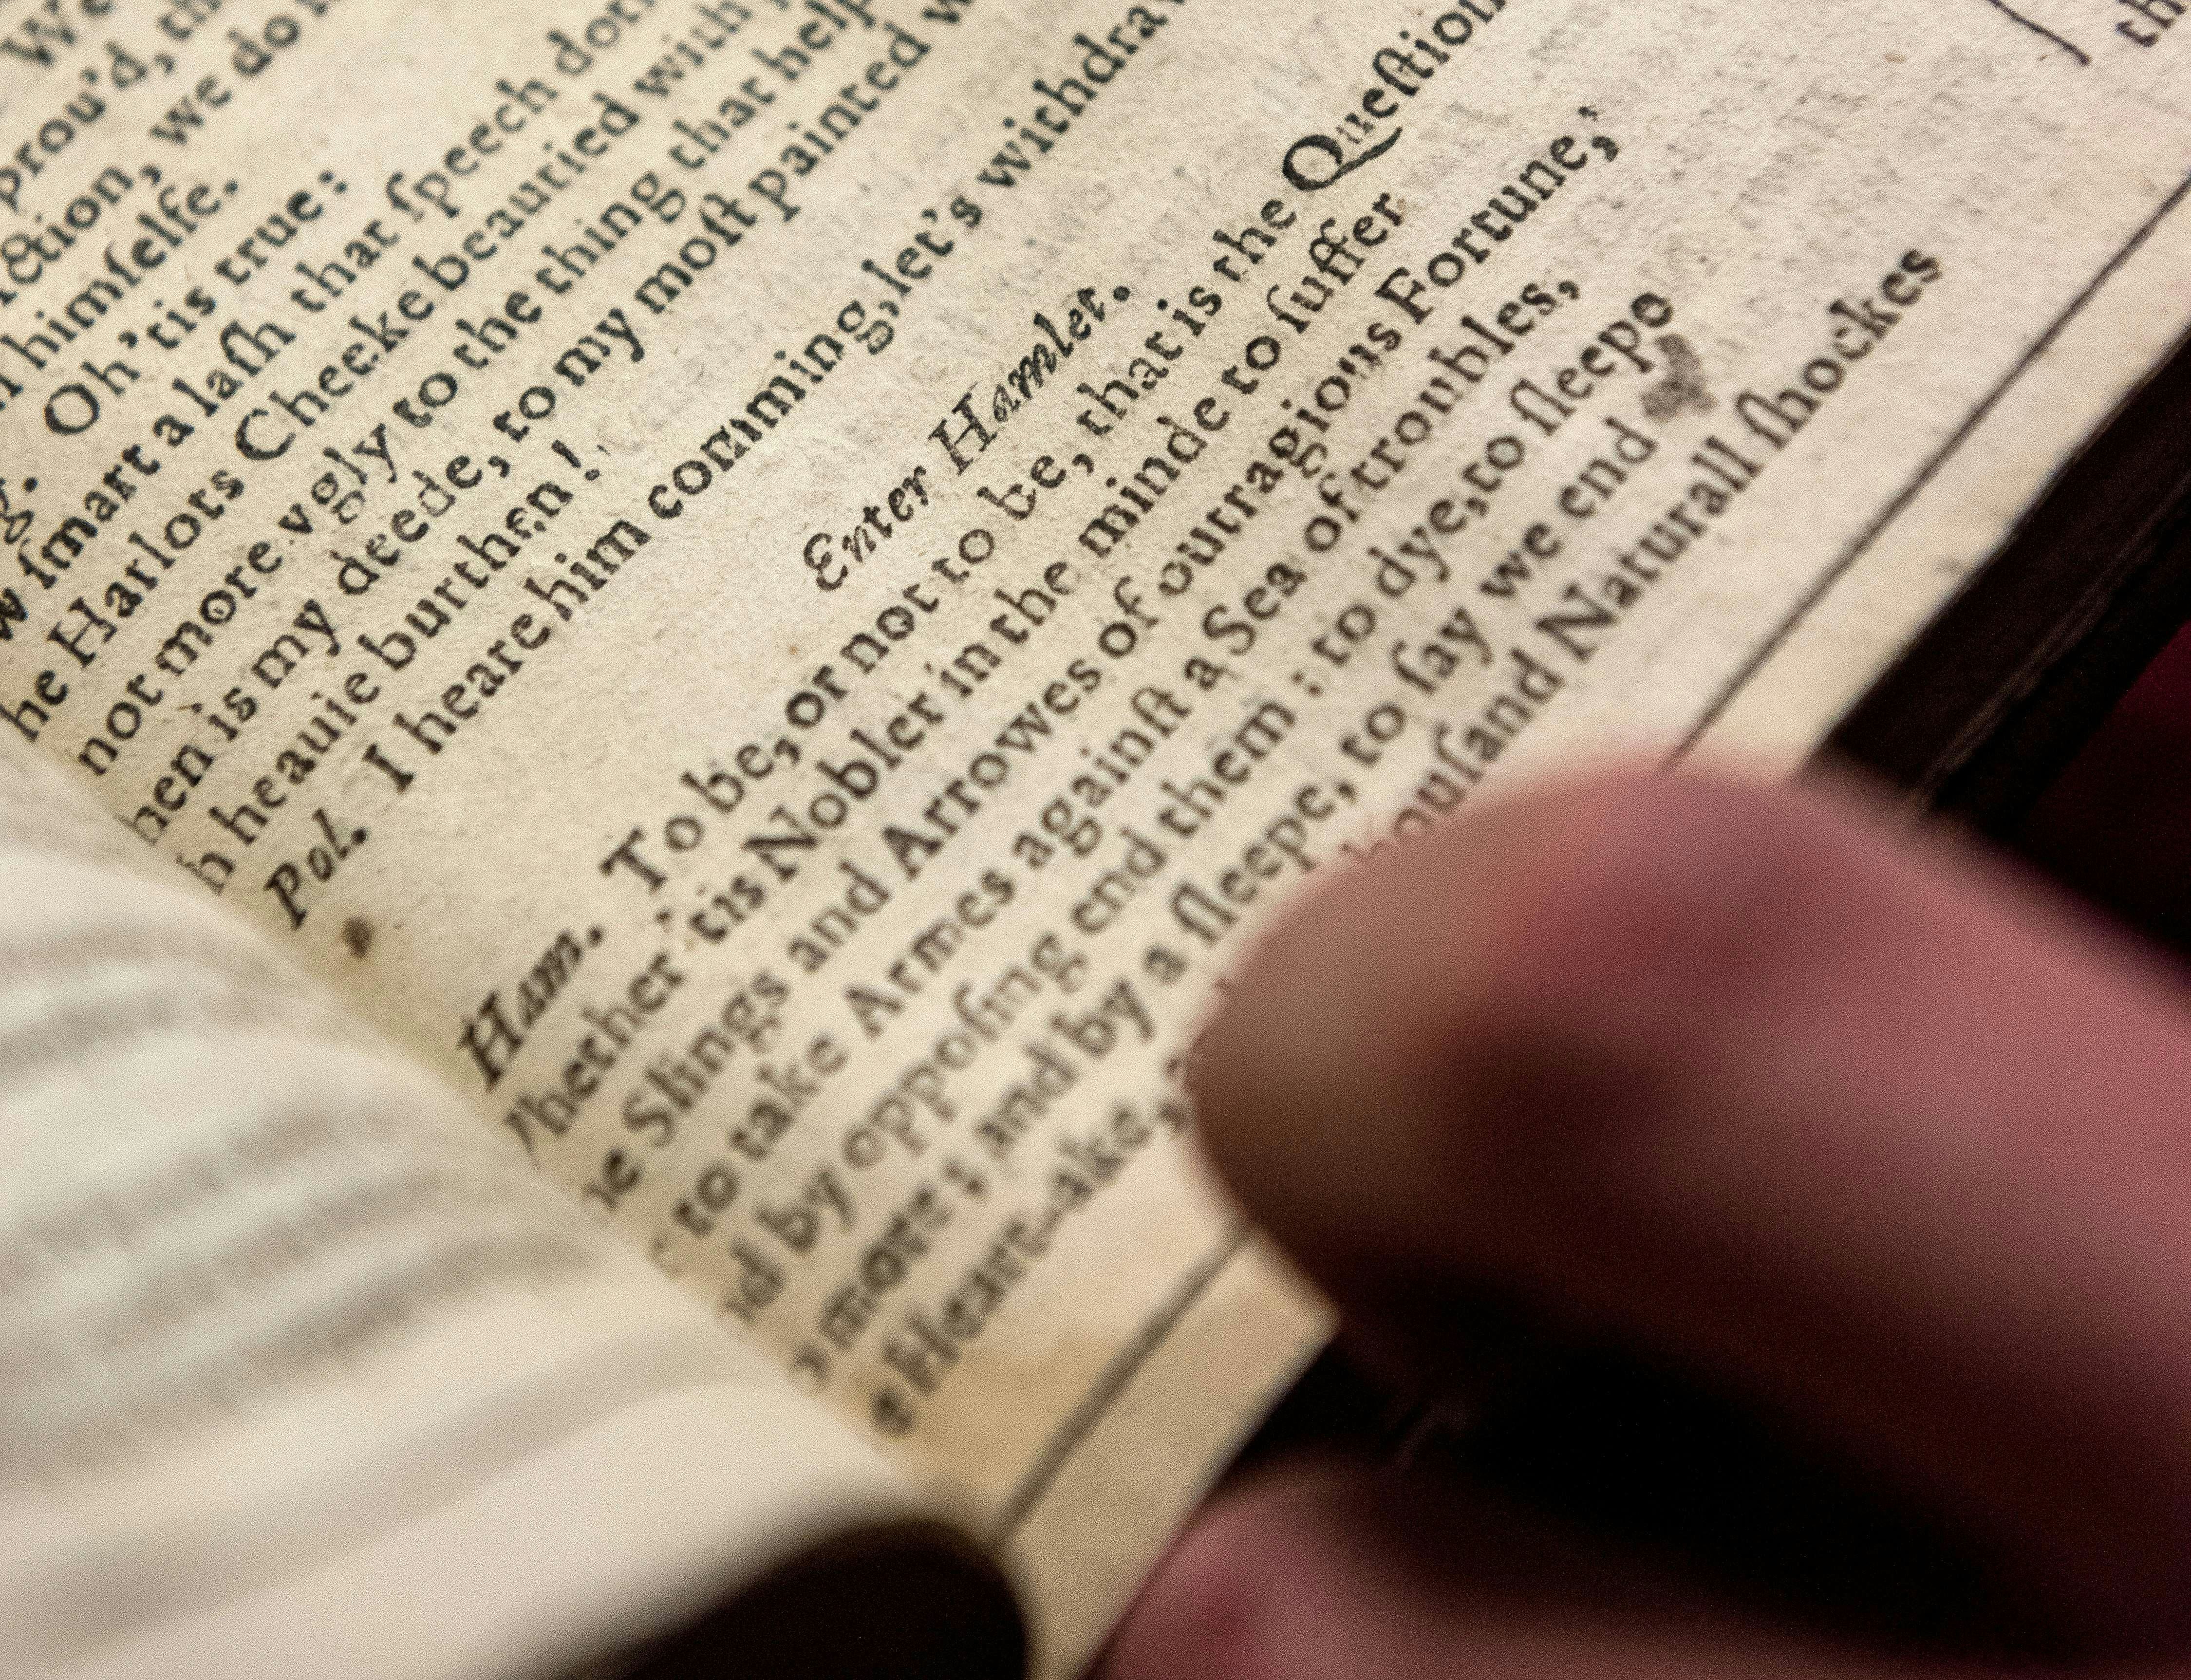 We
prou'd, th
ction, we do
himſelfe.
Oh 'tis true:
ſmart a laſh that ſpeech
he Harlots Cheeke beautied with
not more vgly to the thing that help
hen is my deede, to my moſt painted w
h heauie burthen!
Pol. I heare him comming, let's withdra
Enter Hamlet.
Ham. To be, or not to be, that is the Queſtion
hether 'tis Nobler in the minde to ſuffer
e Slings and Arrowes of outragious Fortune,
to take Armes againſt a Sea of troubles,
d by oppoſing end them : to dye, to ſleepe
more ; and by a ſleepe, to ſay we end
e Heart-ake, ouſand Naturall ſhockes